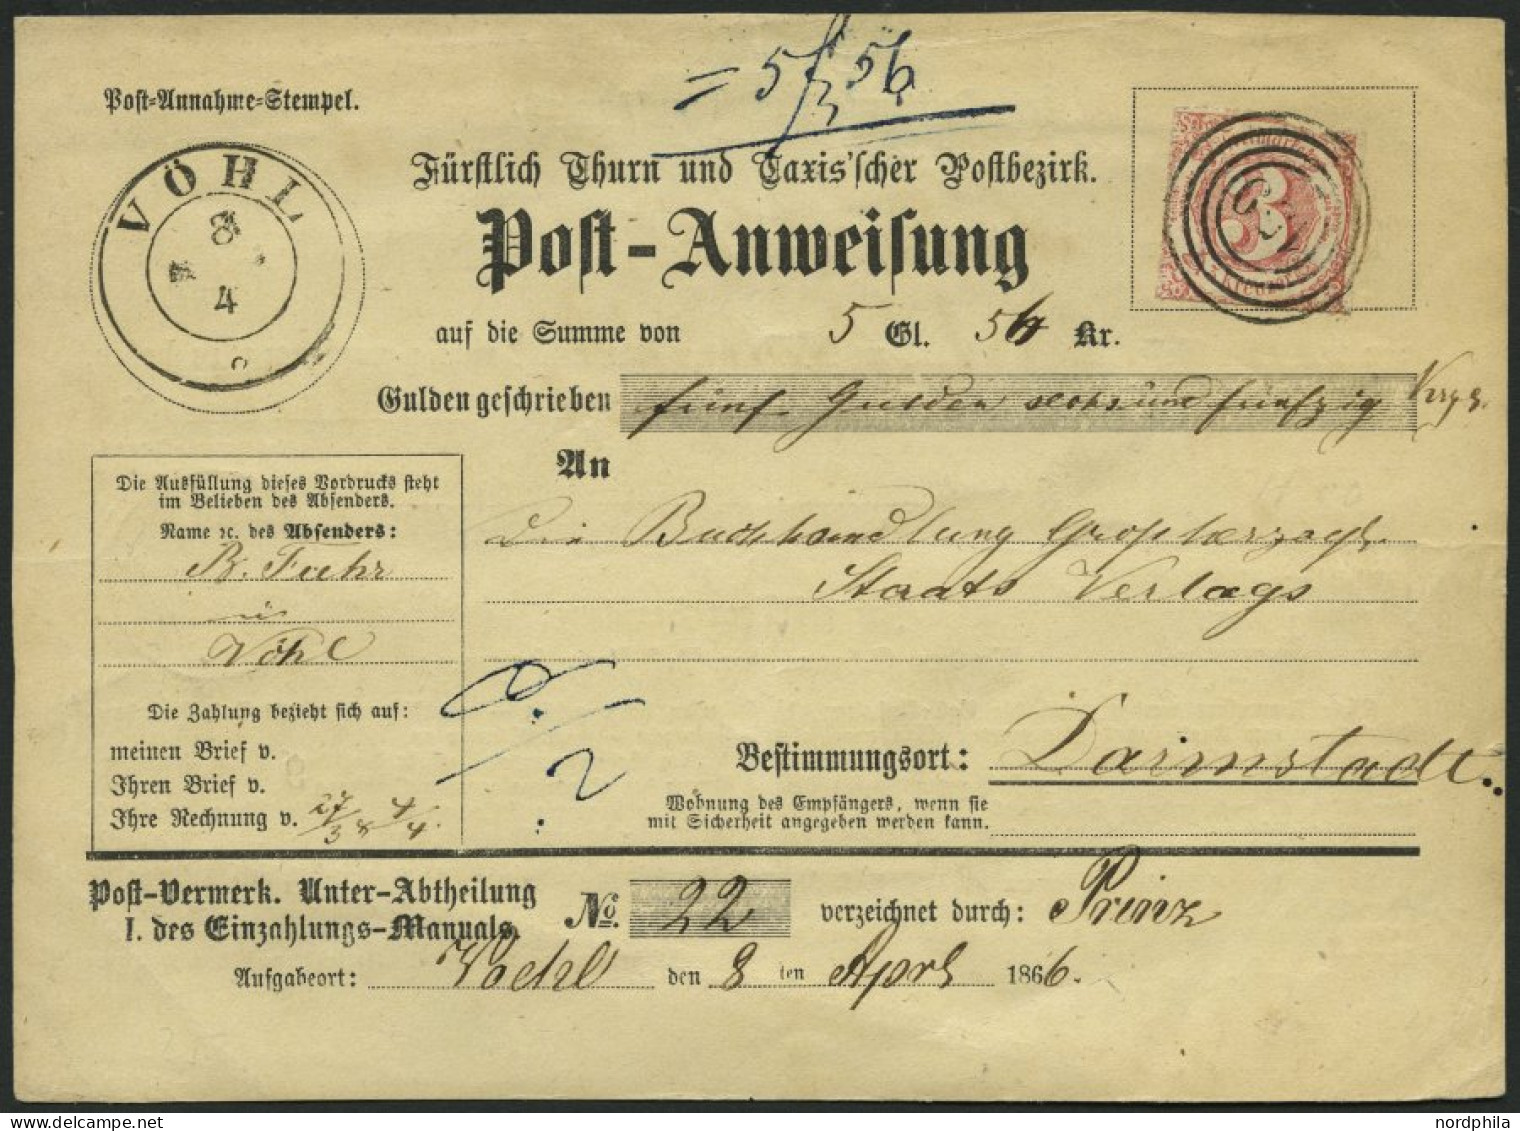 = 5 f 56
Post-Annahme-Stempel.
VÖHL
8
4
Fürstlich Thurn und Taxis'scher Postbezirk.
Post-Anweisung
3
auf die Summe von 5 Gl. 56 Kr.
Gulden geschrieben fünf Gulden sechsund fünfzig
An
Die Ausfüllung dieses Vordrucks steht
im Belieben des Absenders.
Name ꝛc. des Absenders:
B. Fuhr
in
Vöhl
Die Buchhandlung Großherzogl.
Staats Verlags
Die Zahlung bezieht sich auf:
meinen Brief v.
Ihren Brief v.
Ihre Rechnung v. 27/3 & 4/4.
Bestimmungsort: Darmstadt
Wohnung des Empfängers, wenn sie
mit Sicherheit angegeben werden kann.
Post-Vermerk. Unter-Abtheilung
I. des Einzahlungs-Manuals.
No. 22 verzeichnet durch: Prinz
Aufgabeort: Voehl den 8 ten April 1866.
nordphila